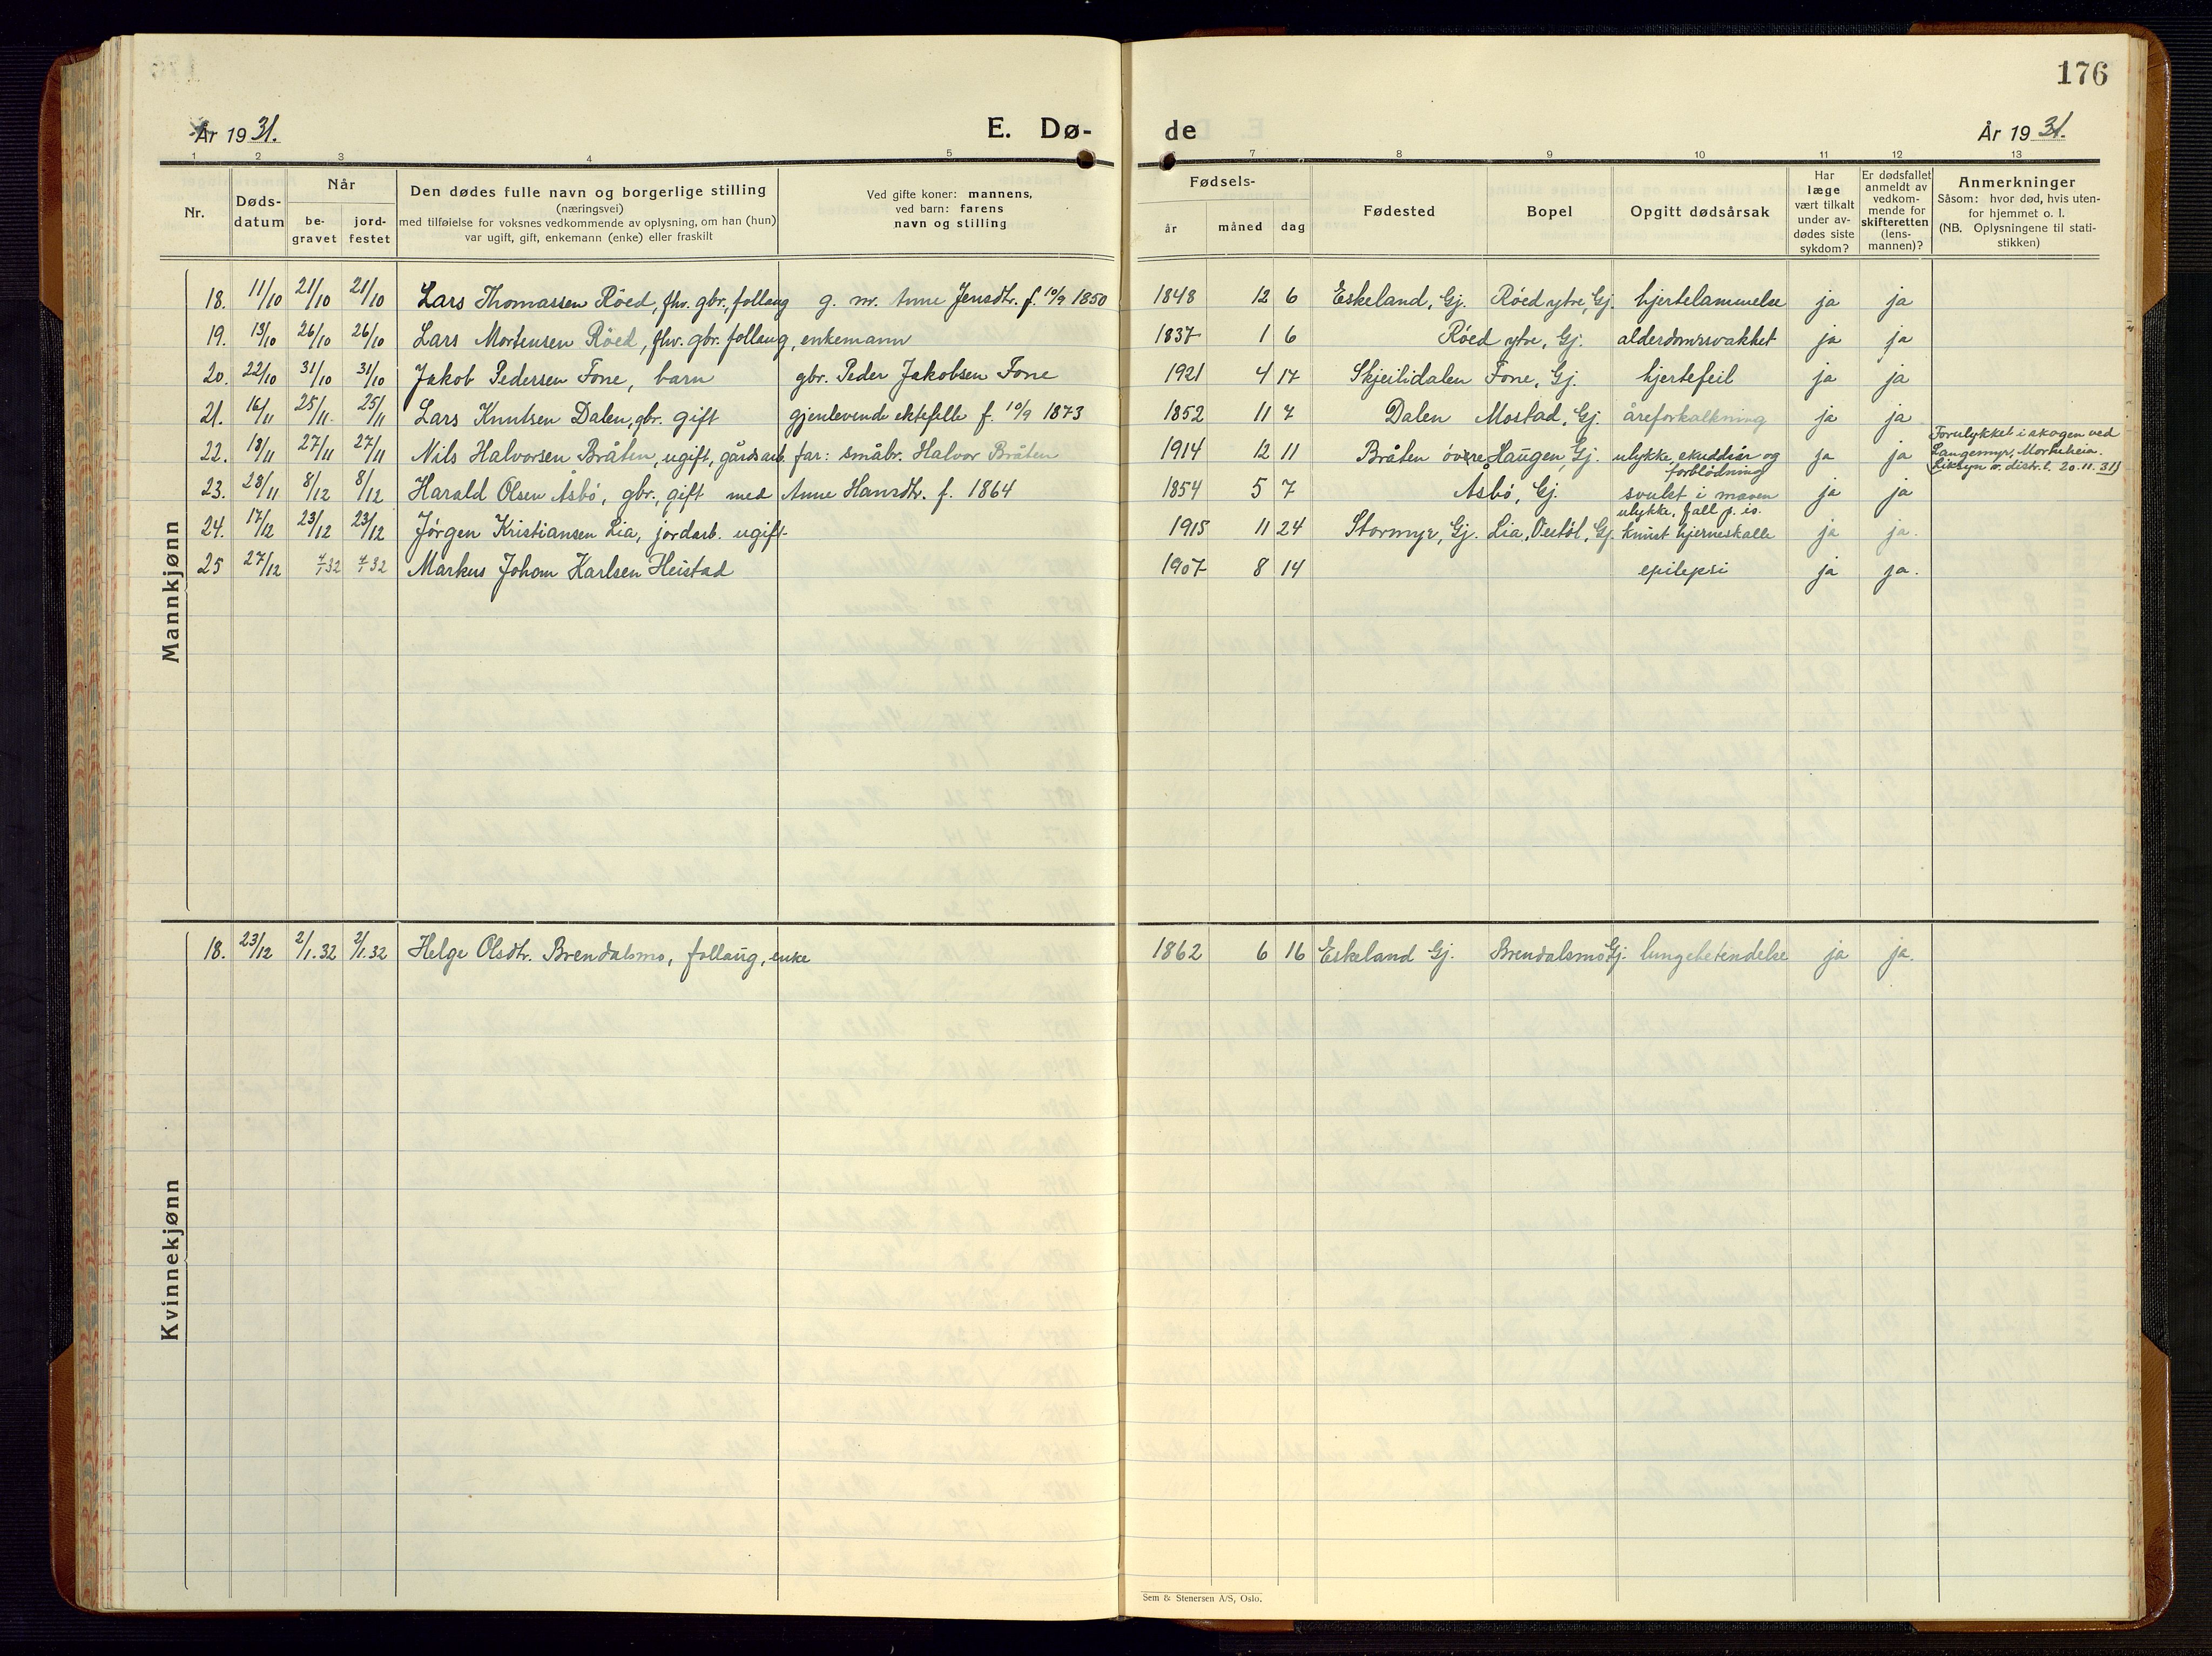 176
År 1931.
E. Dø-
de
År 1931.
1 2 3 4 5 7 8 9 10 11 12 13
Nr.
Døds-
datum
Når
be-
gravet
jord-
festet
Den dødes fulle navn og borgerlige stilling
(næringsvei)
med tilføielse for voksnes vedkommende av oplysning, om han (hun)
var ugift, gift, enkemann (enke) eller fraskilt
Ved gifte koner: mannens,
ved barn: farens
navn og stilling
Fødsels-
år måned dag
Fødested
Bopel
Opgitt dødsårsak
Har
læge
vært tilkalt
under av-
dødes siste
sykdom?
Er dødsfallet
anmeldt av
vedkom-
mende for
skifteretten
(lens-
mannen)?
Anmerkninger
Såsom: hvor død, hvis uten-
for hjemmet o. l.
(NB. Oplysningene til stati-
stikken)
Mannkjønn
18. 11/10 21/10 21/10 Lars Thomassen Röed, fhv. gbr., follaug g. m. Anne Jensdtr. f. 10/9 1850 1848 12 6 Eskeland, Gj. Röed ytre, Gj. hjertelammelse ja ja
19. 13/10 26/10 26/10 Lars Mortensen Röed, fhv. gbr. follaug, enkemann 1837 1 6 Röed ytre, Gj. alderdomssvakhet ja ja
20. 22/10 31/10 31/10 Jakob Pedersen Fone, barn gbr. Peder Jakobsen Fone 1921 4 17 Skjeilidalen Fone, Gj. hjertefeil ja ja
21. 16/11 25/11. 25/11 Lars Knutsen Dalen, gbr. gift gjenlevende ektefelle f. 10/9 1873 1852 11 7 Dalen Mostad, Gj. åreforkalkning ja ja
22. 13/11 27/11 27/11 Nils Halvorsen Bråten, ugift, gårdsarb. far: småbr. Halvor Bråten 1914 12 11 Bråten övre Haugen, Gj. ulykke, skuddsår og
forblödning ja ja
Forulykket i skogen ved
Langemyr,
Liksyn v. distr.l. 20.11.31)
23. 28/11 8/12 8/12 Harald Olsen Åsbö, gbr., gift med Anne Hansdtr. f. 1864 1854 5 7 Åsbö, Gj. svulst i maven ja ja
24. 17/12 23/12 23/12 Jörgen Kristiansen Lia, jordarb. ugift. 1915 11 24 Stormyr, Gj. Lia, Gj. ulykke, fall p. is.
knust hjerneskalle ja ja.
25 27/12 7/1 32 7/1 32 Markus Johan Karlsen Heistad 1907 8 14 epilepsi ja ja.
Kvinnekjønn
18. 23/12 2/1.32 2/1.32 Helge Olsdtr. Brendalsmo, follaug, enke 1862 6 16 Eskeland Gj. Brendalsmo Gj. lungebetendelse ja ja.
Sem & Stenersen A/S, Oslo.